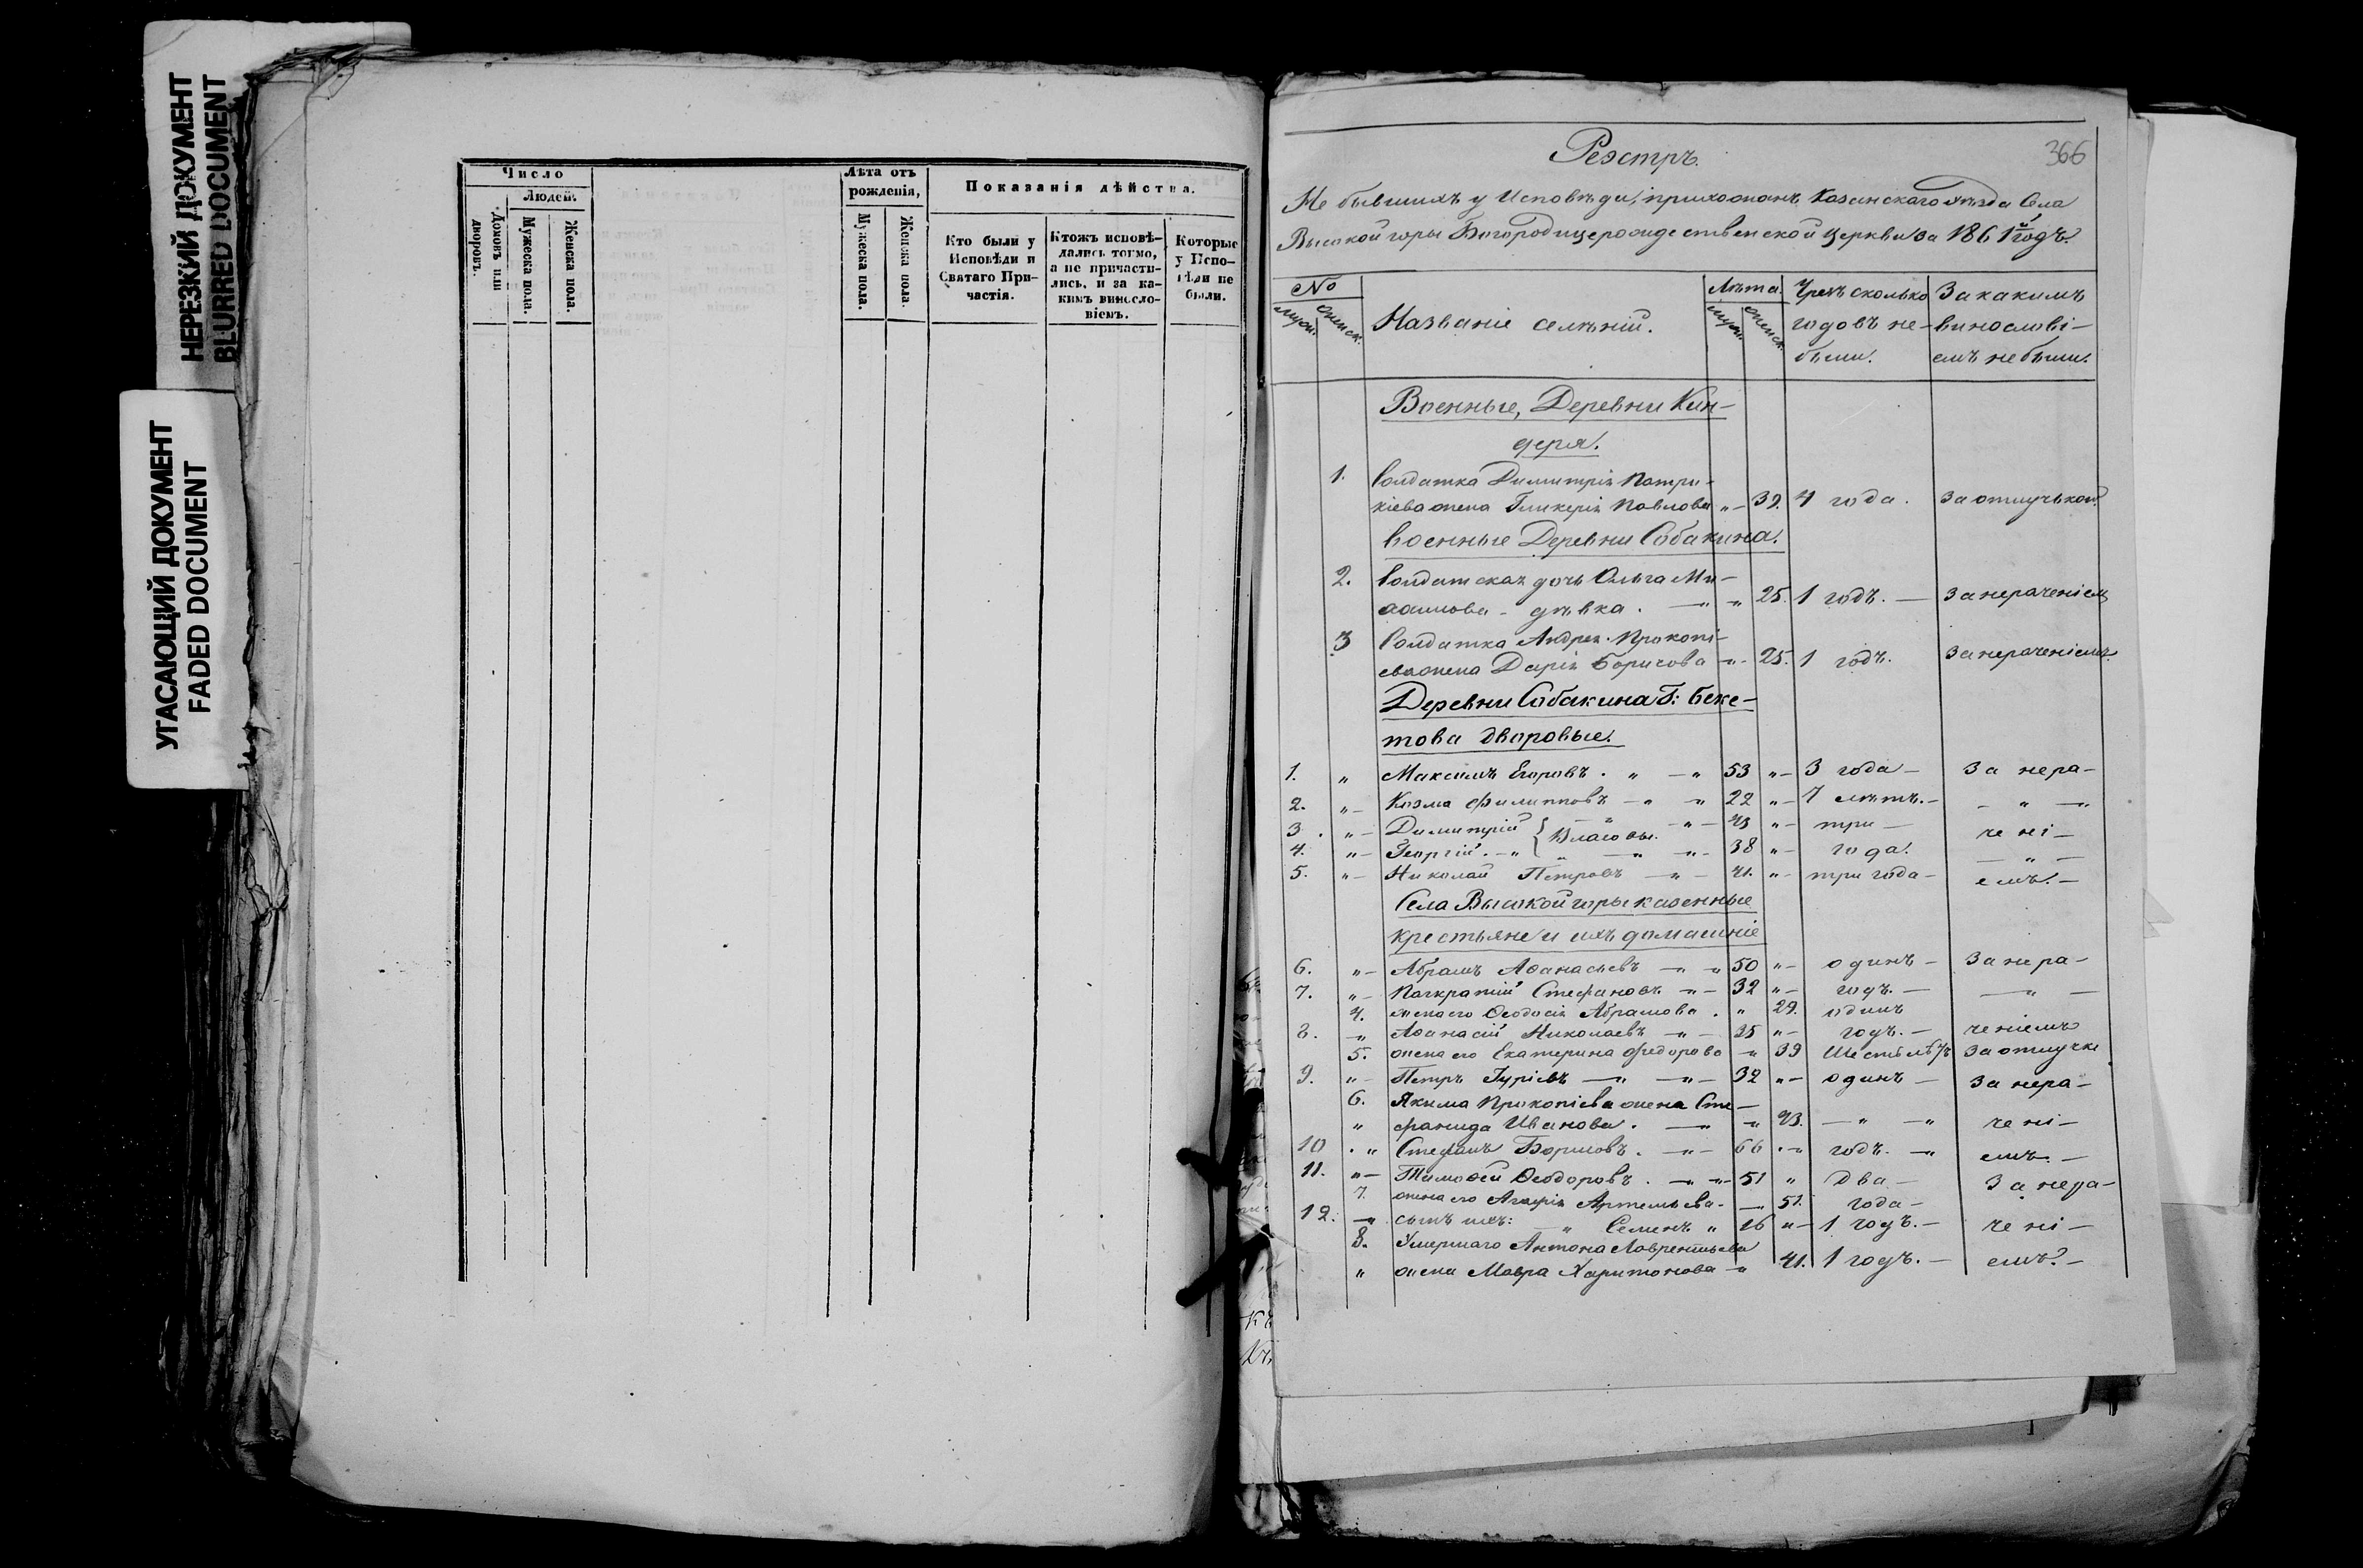 НЕРЕЗКИЙ ДОКУМЕНТ
BLURRED DOCUMENT
УГАСАЮЩИЙ ДОКУМЕНТ
FADED DOCUMENT
Число
Людей.
Домовъ или дворовъ.
Мужеска пола.
Женска пола.
Лѣта отъ рожденія,
Мужеска пола.
Женска пола.
Показанія дѣйства.
Кто были у Исповѣди и Святаго Причастія.
Ктожъ исповѣ-
дались токмо,
а не причасти-
лись, и за ка-
кимъ винесло-
віемъ.
Которые
у Испо-
вѣди не
были.
366
Реэстръ.
Не бывшихъ у Исповѣди, прихожанъ Казанскаго уѣзда Села
Высокой горы Богородицерождественской церкви за 1861й годъ.
№
мужск.
женск.
Названіе селѣній.
Лѣта.
мужск.
женск.
Чрезъ сколько
годовъ не-
были.
За какимъ
винослові-
емъ не были.
Военные, Деревни Кин-
деря.
1. Солдатка Димитрія Патри-
кіева жена Гликерія Павлова „ — 39. 4 года. За отлучкой
Военные Деревни Собакина.
2. Солдатская дочь Ольга Ми-
хайлова - дѣвка. — „ „ 25. 1 годъ. — За нераченіем
3 Солдатка Андрея Прокопі-
ева жена Дарія Борисова — „ - 25. 1 годъ. За нераченіемъ.
Деревни Собакина Г: Беке-
това дворовые.
1. „ Максимъ Егоровъ. „ — „ 53 „ — 3 года — За нера-
2. „ — Козма Филипповъ — „ „ 22 „ — 7 лѣтъ. — - „ —
3. „ — Димитрій „ „ — 43 „ — три — чені-
Власовы.
4. „ — Георгій. — „ „ — „ „ — 38 „ — года. — „ —
5. „ — Николай Петровъ — „ — 41. „ — три года — емъ. —
Села Высокой горы казенные
крестьяне и ихъ домашніе
6. „ — Абрамъ Аѳанасьевъ — „ „ 50 „ — одинъ — За нера-
7. „ — Панкратій Стефановъ — „ — 32 „ — годъ. — — „ —
4. жена его Ѳеодосія Абрамова. „ 29. одинъ
8. — „ Аѳанасій Николаевъ — „ — 35 „ — годъ. — ченіемъ
5. жена его Екатерина Федорова — „ 39 Шесть лѣтъ За отлучк
9. „ — Петръ Гуріевъ — „ — „ — 32 „ — одинъ — За нера-
6. Якима Прокопіева жена Сте-
„ фанида Иванова. — „ — „ 43. — „ — „ чені-
10. „ Стефанъ Борисовъ. — „ — 66 „ годъ. — „ емъ. —
11. „ — Тимоѳей Ѳеодоровъ. — „ „ — 51 „ Два — За нера-
7. жена его Агафія Артемьева. — — 51. года —
12. — „ сынъ ихъ: „ Семенъ „ 16 „ — 1 годъ. — чені-
8. Умершаго Антона Лаврентьева
„ жена Мавра Харитонова — „ 41. 1 годъ. — емъ. —